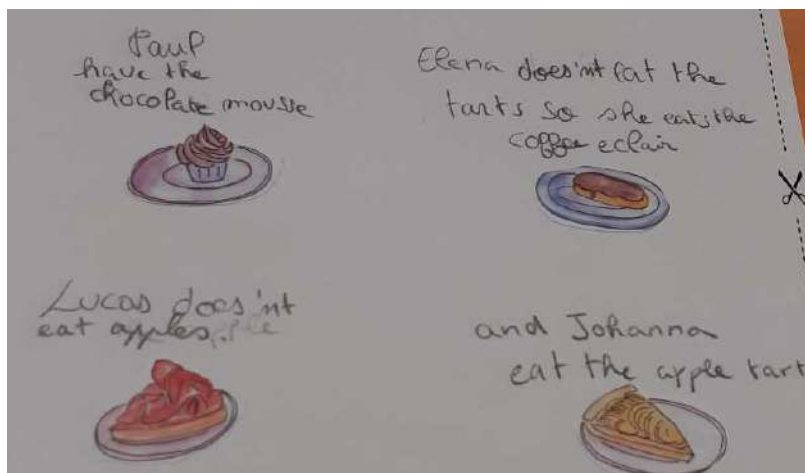 Paul
have the
chocolate mousse
Elena does'nt eat the
tarts so she eats the
coffee eclair
Lucas does'nt
eat apples.
and Johanna
eat the apple tart